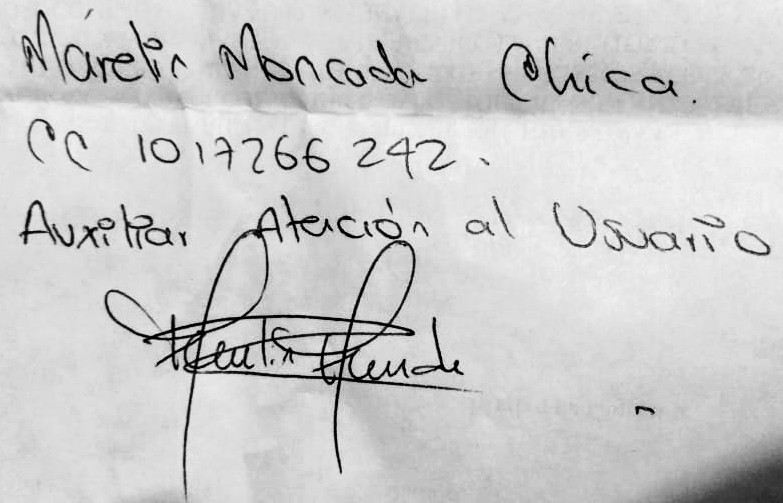 Marelin Moncada Chica.
CC 1017266242.
Auxiliar Atención al Usuario